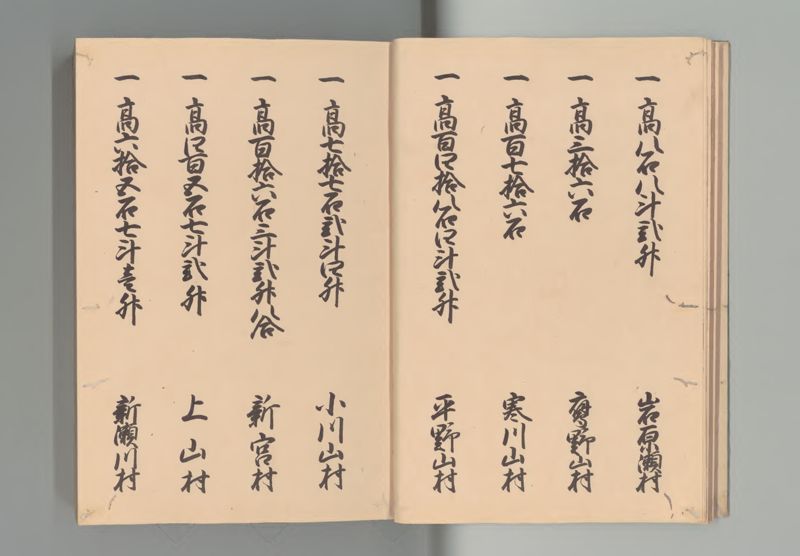 一 高八石八斗弐升 岩原瀬村
一 高三拾六石 鷹野山村
一 高百七拾六石 寒川山村
一 高百四拾八石四斗弐升 平野山村
一 高七拾七石弐斗四升 小川山村
一 高百拾六石三斗弐升八合 新宮村
一 高四百五石七斗弐升 上山村
一 高六拾五石七斗壱升 新瀬川村